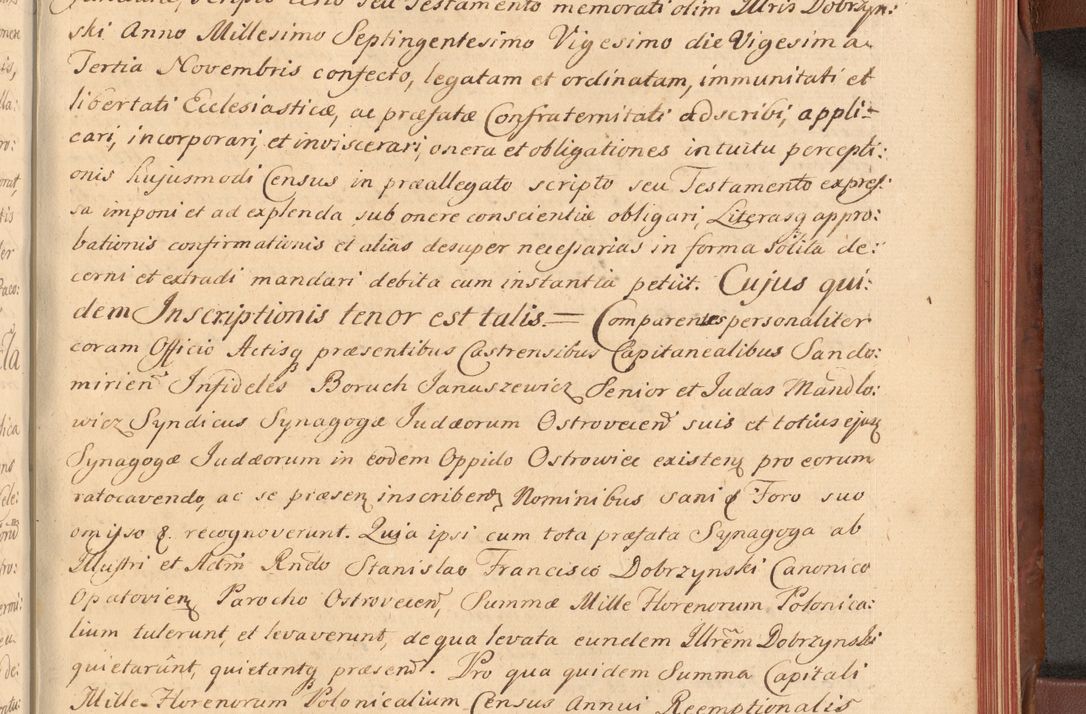 scripto certo seu Testamento memorati olim Illris Dobrzyn:
ski Anno Millesimo Septingentesimo Vigesimo die Vigesima
Tertia Novembris confecto, legatam et ordinatam, immunitati et
libertati Ecclesiasticæ, ac præfatæ Confraternitati adscribi, appli-
cari, incorporari, et inviscerari, onera et obligationes intuitu percepti:
onis hujusmodi Census in præallegato scripto seu Testamento expres:
sa imponi et ad explenda sub onere conscientiæ obligari, Literasq appro:
bationis confirmationis et alias desuper necessarias in forma solita de:
cerni et extradi mandari debita cum instantia petiit. Cujus qui:
dem Inscriptionis tenor est talis. = Comparentes personaliter
coram Officio Actisq præsentibus Castrensibus Capitanealibus Sando:
mirien Infideles Boruch Januszewicz Senior et Judas Mandlo:
wicz Syndicus Synagogæ Judæorum Ostrovecen suis et totius ejusq
Synagogæ Judæorum in eodem Oppido Ostrowiec existen pro eorum
ratocavendo, ac se præsen inscriben Nominibus sani Foro suo
omisso &. recognoverunt. Quia ipsi cum tota præfata Synagoga ab
Illustri et Adm Rndo Stanislao Francisco Dobrzynski Canonico
Opatovien Parocho Ostrovecen, Summæ Mille Florenorum Polonica:
lium tulerunt, et levaverunt, de qua levata eundem Illrem Dobrzynski
quietarunt, quietantq præsen. Pro qua quidem Summa Capitali
Mille Florenorum Polonicalium Census Annui Reemptionalis